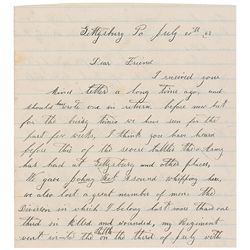 Gettysburg Pa July 10th 63
Dear Friend
I received your
kind letter a long time ago, and
should wrote one in return, before now but
for the busy times we has seen for the
past few weeks, I think you has heard
before this of the severe battles the army
has had at Gettysburg and other places,
We gave Johny Reb a sound whipping here,
we also lost a great number of men. The
Division in which I belong lost more than one
third in killed and wounded, my Regiment
went into the battle on the third of July with